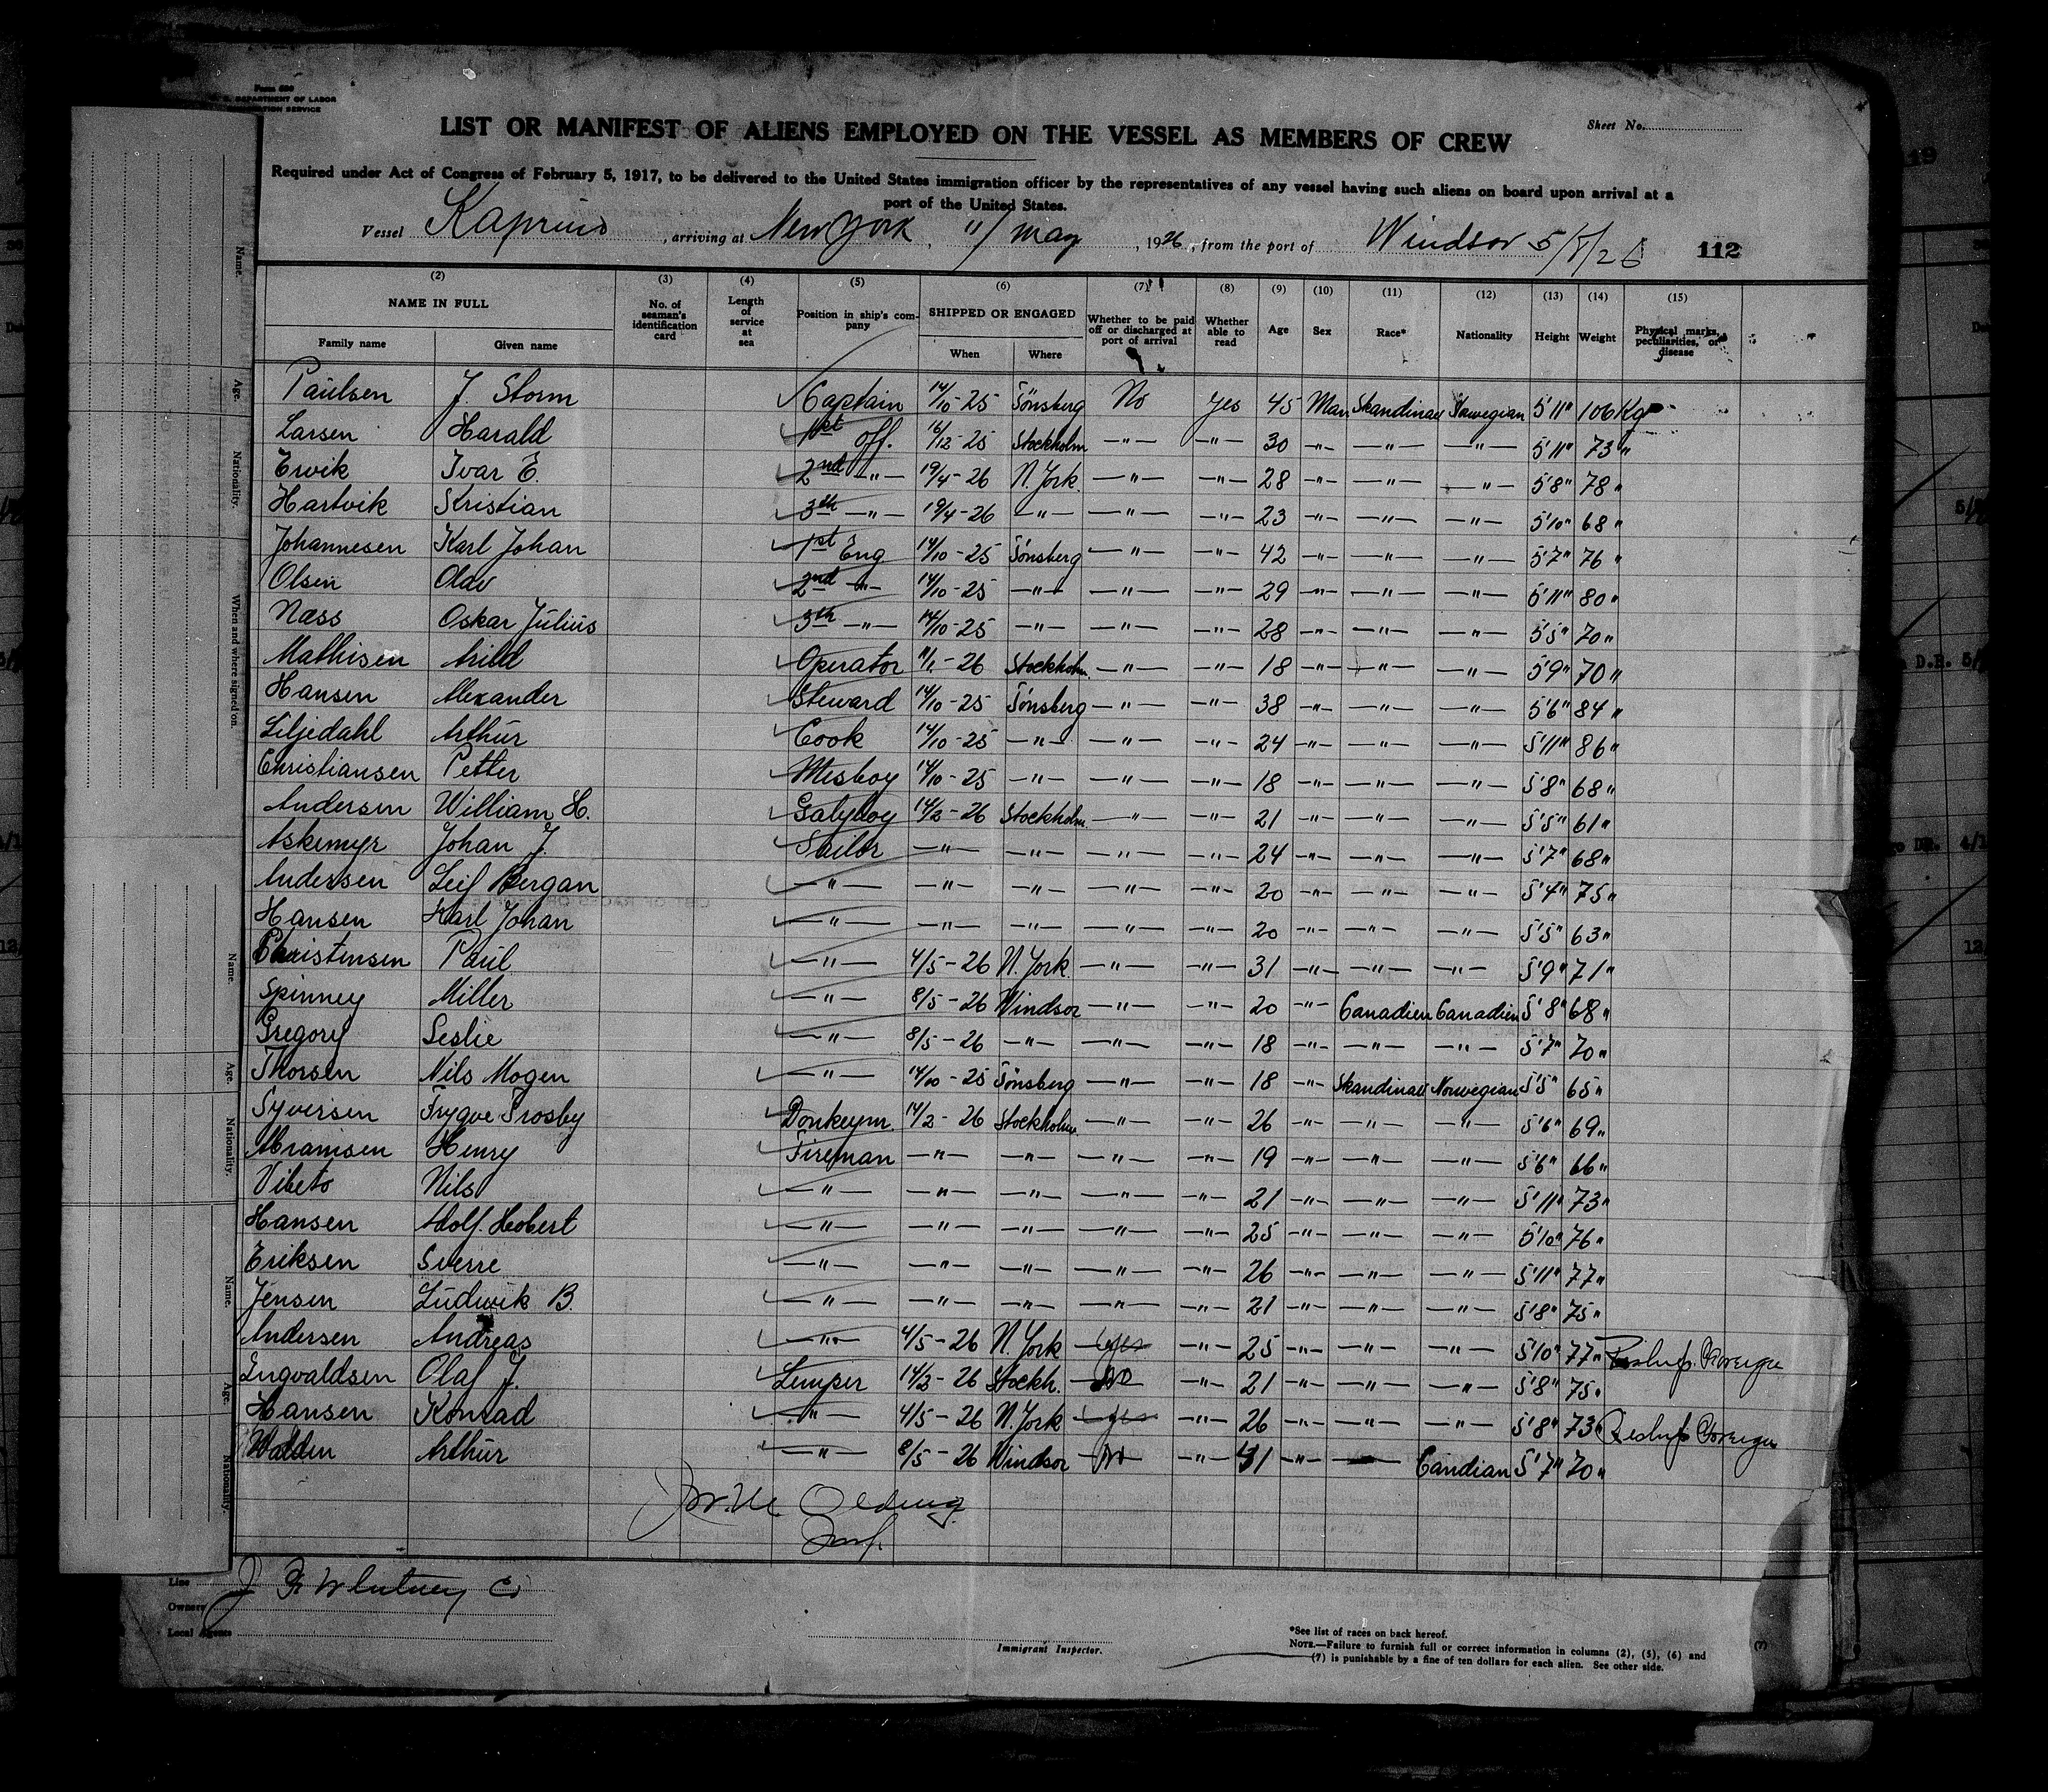 Form 680
U. S. DEPARTMENT OF LABOR
IMMIGRATION SERVICE
Sheet No.
LIST OR MANIFEST OF ALIENS EMPLOYED ON THE VESSEL AS MEMBERS OF CREW
Required under Act of Congress of February 5, 1917, to be delivered to the United States immigration officer by the representatives of any vessel having such aliens on board upon arrival at a
port of the United States.
Vessel Kaprino, arriving at New York, 11/ May, 1926, from the port of Windsor 5/8/26 112
(2) (3) (4) (5) (6) (7) (8) (9) (10) (11) (12) (13) (14) (15)
NAME IN FULL No. of seaman's identification card Length of service at sea Position in ship's company SHIPPED OR ENGAGED Whether to be paid off or discharged at port of arrival Whether able to read Age Sex Race* Nationality Height Weight Physical marks, peculiarities, or disease
Family name Given name When Where
Paulsen J. Storm Captain 14/10-25 Tönsberg No Yes 45 Man Skandinav Norwegian 5'11" 106 Kg
Larsen Harald 1st off. 16/12-25 Stockholm —"— —"— 30 —"— —"— —"— 5'11" 73"
Ervik Ivar E. 2nd —"— 19/4-26 N. York. —"— —"— 28 —"— —"— —"— 5'8" 78"
Hartvik Kristian 3th —"— 19/4-26 —"— —"— —"— 23 —"— —"— —"— 5'10" 68"
Johannesen Karl Johan 1st Eng 14/10-25 Tönsberg —"— —"— 42 —"— —"— —"— 5'7" 76"
Olsen Olav 2nd —"— 14/10-25 —"— —"— —"— 29 —"— —"— —"— 5'11" 80"
Nass Oskar Julius 3th —"— 14/10-25 —"— —"— —"— 28 —"— —"— —"— 5'5" 70"
Mathisen Arild Operator 11/1-26 Stockholm —"— —"— 18 —"— —"— —"— 5'9" 70"
Hansen Alexander Steward 14/10-25 Tönsberg —"— —"— 38 —"— —"— —"— 5'6" 84"
Liljedahl Arthur Cook 14/10-25 —"— —"— —"— 24 —"— —"— —"— 5'11" 86"
Christiansen Petter Mesboy 14/10-25 —"— —"— —"— 18 —"— —"— —"— 5'8" 68"
Andersen William H. Galyboy 14/2-26 Stockholm —"— —"— 21 —"— —"— —"— 5'5" 61"
Askemyr Johan J. Sailor —"— —"— —"— —"— 24 —"— —"— —"— 5'7" 68"
Andersen Leif Bergan —"— —"— —"— —"— —"— 20 —"— —"— —"— 5'4" 75"
Hansen Karl Johan —"— —"— —"— —"— —"— 20 —"— —"— —"— 5'5" 63"
Christensen Paul —"— 4/5-26 N. York. —"— —"— 31 —"— —"— —"— 5'9" 71"
Spinney Miller —"— 8/5-26 Windsor —"— —"— 20 —"— Canadien Canadien 5'8" 68"
Gregory Leslie —"— 8/5-26 —"— —"— —"— 18 —"— —"— —"— 5'7" 70"
Thorsen Nils Mogen —"— 14/10-25 Tönsberg —"— —"— 18 —"— Skandinav Norwegian 5'5" 65"
Syversen Trygve Trosby Donkeym. 14/2-26 Stockholm —"— —"— 26 —"— —"— —"— 5'6" 69"
Abramsen Henry Fireman —"— —"— —"— —"— 19 —"— —"— —"— 5'6" 66"
Vibeto Nils —"— —"— —"— —"— —"— 21 —"— —"— —"— 5'11" 73"
Hansen Adolf. Hobert —"— —"— —"— —"— —"— 25 —"— —"— —"— 5'10" 76"
Eriksen Sverre —"— —"— —"— —"— —"— 26 —"— —"— —"— 5'11" 77"
Jensen Ludwik B. —"— —"— —"— —"— —"— 21 —"— —"— —"— 5'8" 75"
Andersen Andreas —"— 4/5-26 N. York yes —"— 25 —"— —"— —"— 5'10" 77" Reship Foreign
Engvaldsen Olaf J. Lemper 14/2-26 Stockh. No —"— 21 —"— —"— —"— 5'8" 75"
Hansen Konrad —"— 4/5-26 N. York yes —"— 26 —"— —"— —"— 5'8" 73 Reship Foreign
Walden Arthur —"— 8/5-26 Windsor No —"— 31 —"— — Candian 5'7" 70"
Insp.
Line J F Whitney Co
Owners
Local Agents
Immigrant Inspector.
*See list of races on back hereof.
NOTE.—Failure to furnish full or correct information in columns (2), (5), (6) and
(7) is punishable by a fine of ten dollars for each alien. See other side.
Name.
Age.
Nationality.
When and where signed on.
Name.
Age.
Nationality.
Name.
Age.
Nationality.